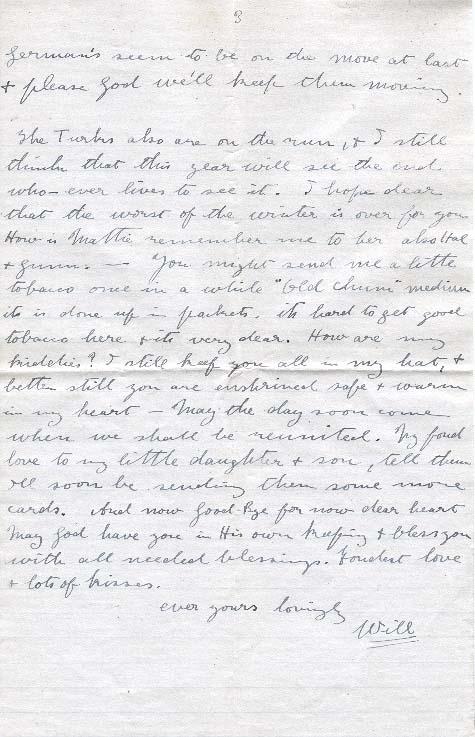 3
German's seem to be on the move at last
+ please God we'll keep them moving.
The Turks also are on the run, & I still
think that this year will see the end
who-ever lives to see it. I hope dear
that the worst of the winter is over for you
How is Mattie remember me to her also Hal
+ — You might send me a little
tobacco once in a while "Old Chum" medium
its is done up in packets. its hard to get good
tobacco here & its very dear. How are my
kiddies? I still keep you all in my hat, &
better still you are enshrined safe + warm
in my heart — May the day soon come
when we shall be reunited. My fond
love to my little daughter & son, tell them
I'll soon be sending them some more
cards. And now Good-Bye for now dear heart
May God have you in His own keeping & bless you
with all needed blessings. Fondest love
+ lots of kisses.
ever yours lovingly
Will